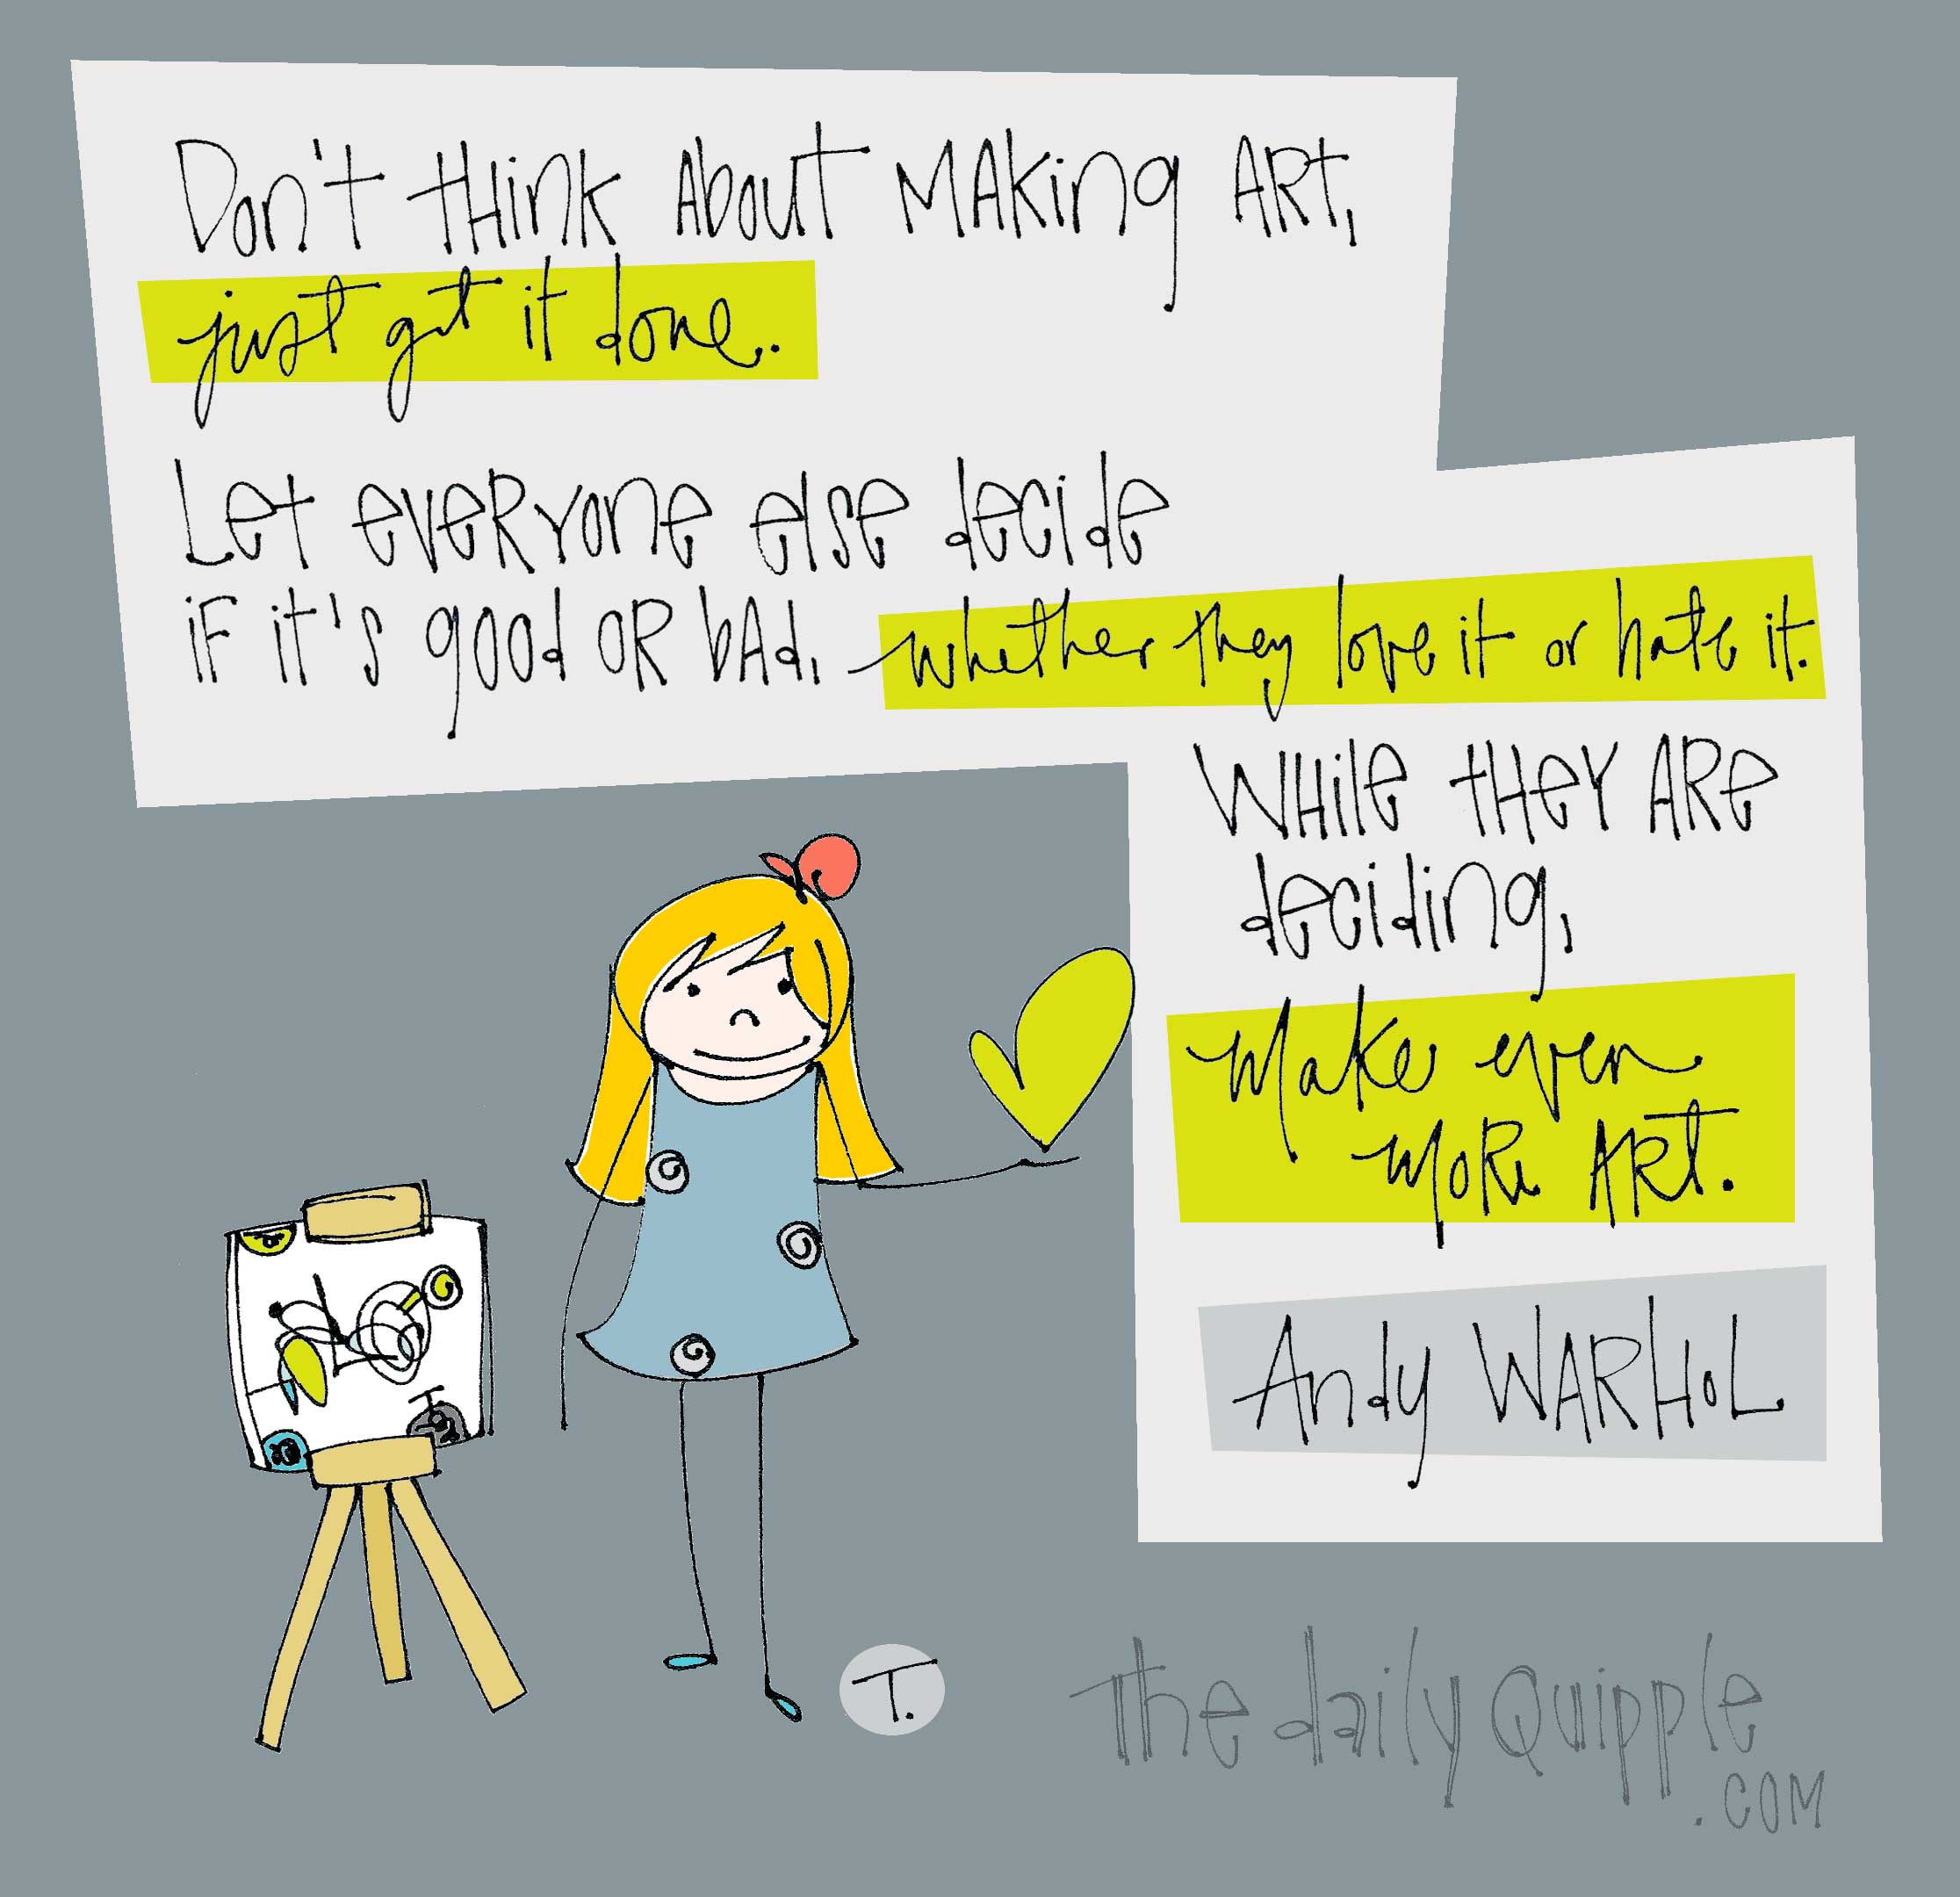 Don't think about making art,
just get it done.
Let everyone else decide
if it's good or bad, whether they love it or hate it.
While they are
deciding,
make even
more art.
Andy Warhol
T.
the daily quipple
.com